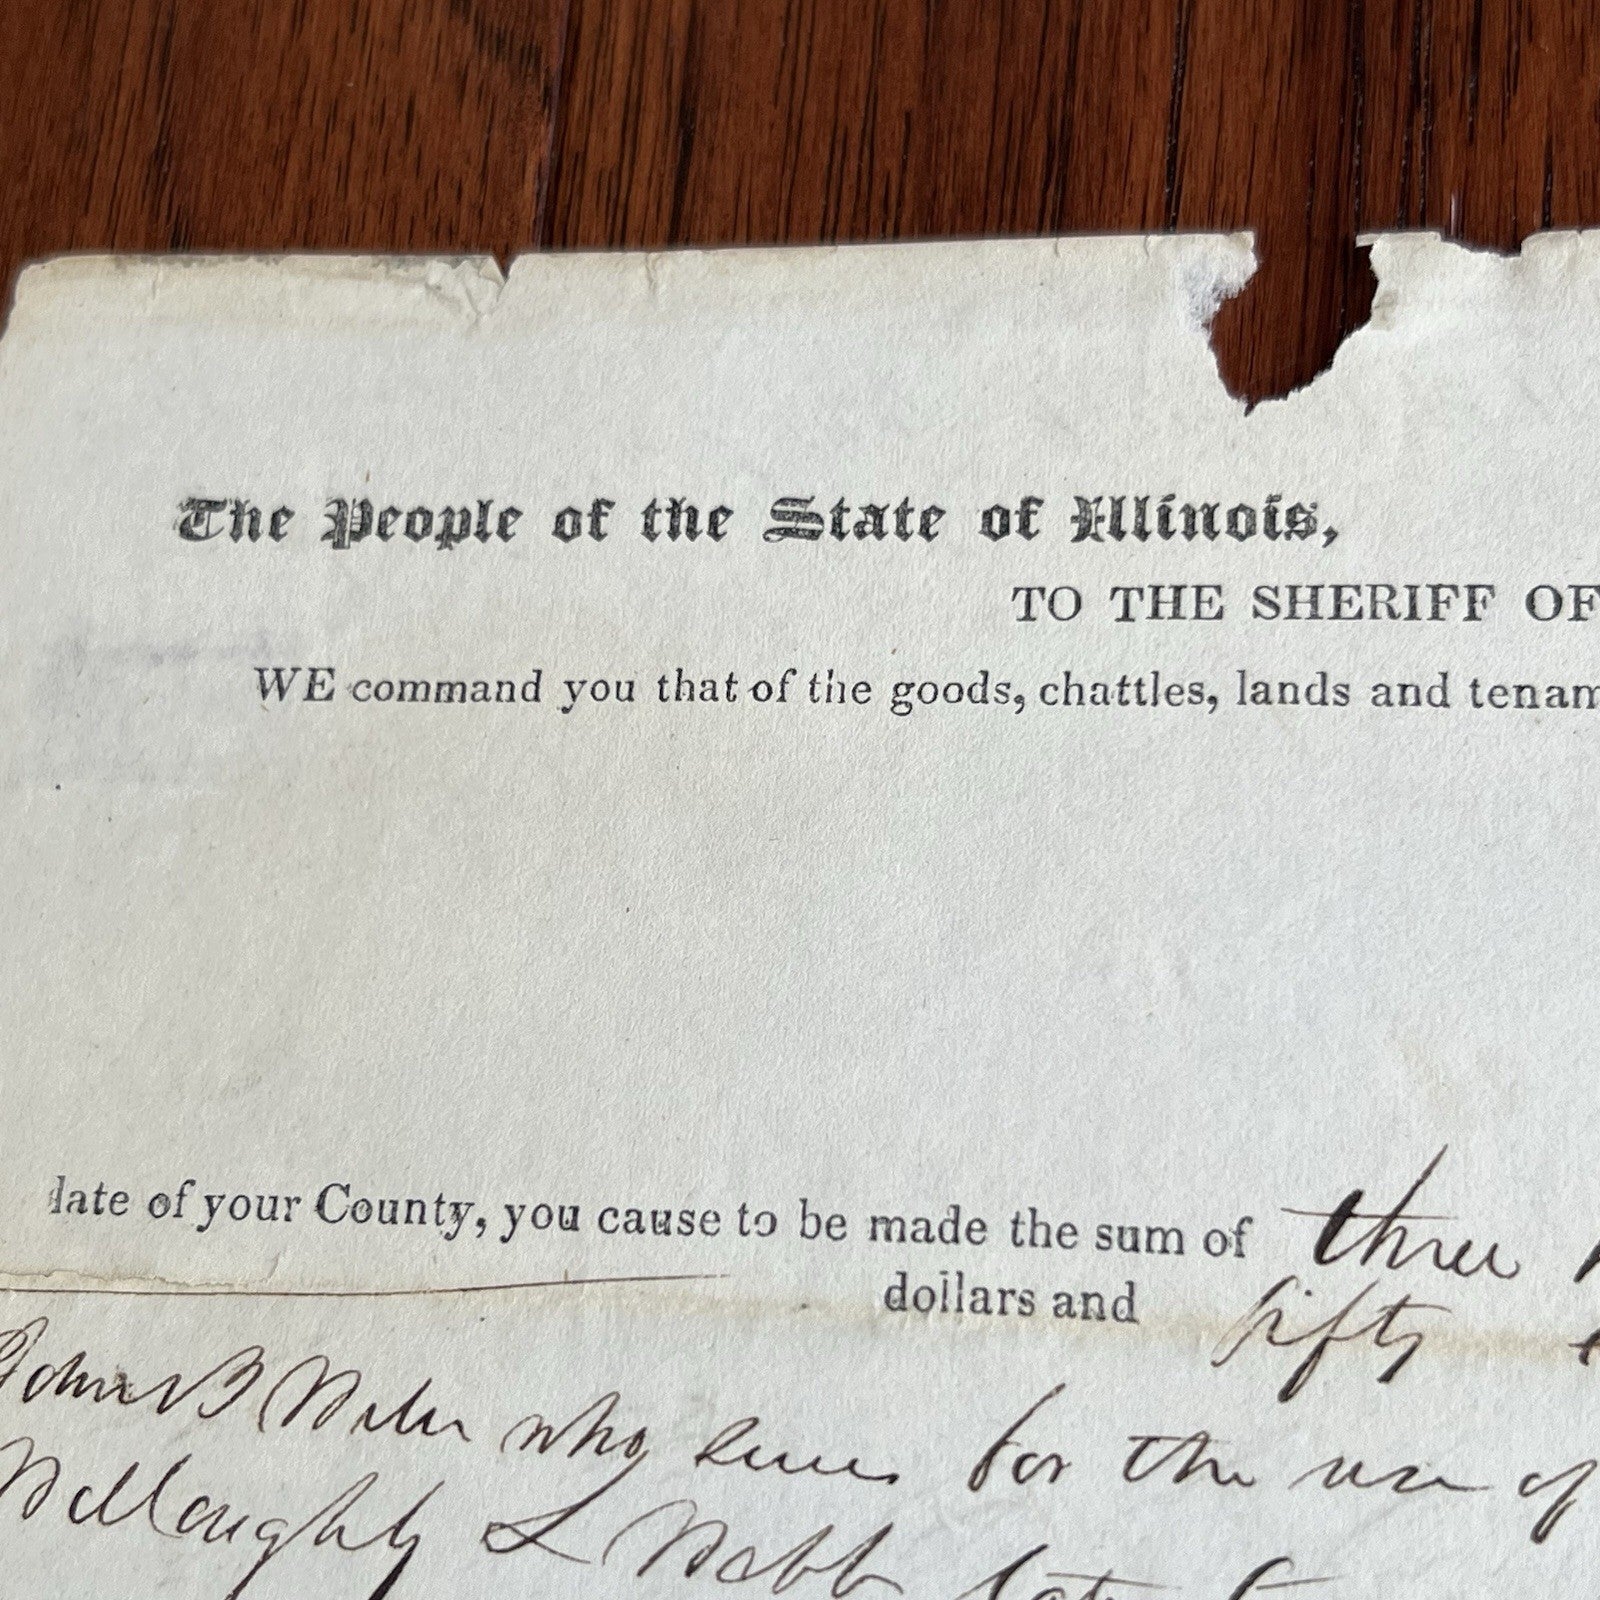 The People of the State of Illinois,
TO THE SHERIFF OF
WE command you that of the goods, chattles, lands and tenam
late of your County, you cause to be made the sum of three
dollars and fifty
John B Weber who sues for the use of
Willoughby L Webb late